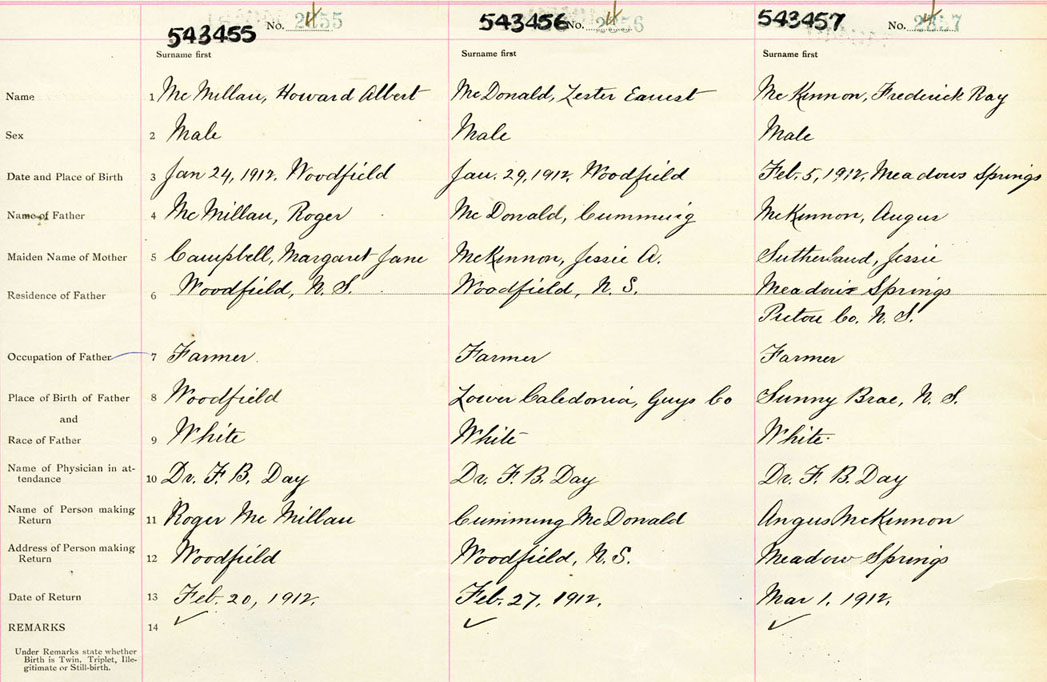 543455 No.
543456 No.
543457 No.
Surname first Surname first Surname first
Name 1 McMillan, Howard Albert McDonald, Lester Earnest McKinnon, Frederick Ray
Sex 2 Male Male Male
Date and Place of Birth 3 Jan 24, 1912. Woodfield Jan. 29, 1912. Woodfield Feb. 5, 1912. Meadows Springs
Name of Father 4 McMillan, Roger McDonald, Cumming McKinnon, Angus
Maiden Name of Mother 5 Campbell, Margaret Jane McKinnon, Jessie A. Sutherland, Jessie
Residence of Father 6 Woodfield, N. S. Woodfield, N. S. Meadow Springs
Pictou Co. N. S.
Occupation of Father 7 Farmer. Farmer Farmer
Place of Birth of Father 8 Woodfield Lower Caledonia, Guys Co Sunny Brae, N. S.
and
Race of Father 9 White White White.
Name of Physician in at-
tendance 10 Dr. F. B. Day Dr. F. B. Day Dr. F. B. Day
Name of Person making
Return 11 Roger McMillan Cumming McDonald Angus McKinnon
Address of Person making
Return 12 Woodfield Woodfield, N. S. Meadow Springs
Date of Return 13 Feb. 20, 1912. Feb. 27, 1912. Mar 1. 1912.
REMARKS 14
Under Remarks state whether
Birth is Twin, Triplet, Ille-
gitimate or Still-birth.